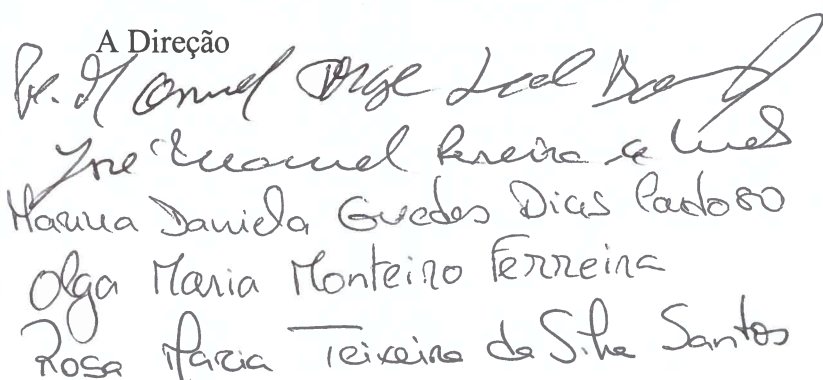 A Direção
Pe. Manuel Jorge Leal
José Manuel Pereira
Marina Daniela Guedes Dias Cardoso
Olga Maria Monteiro Ferreira
Rosa Maria Teixeira da Silva Santos